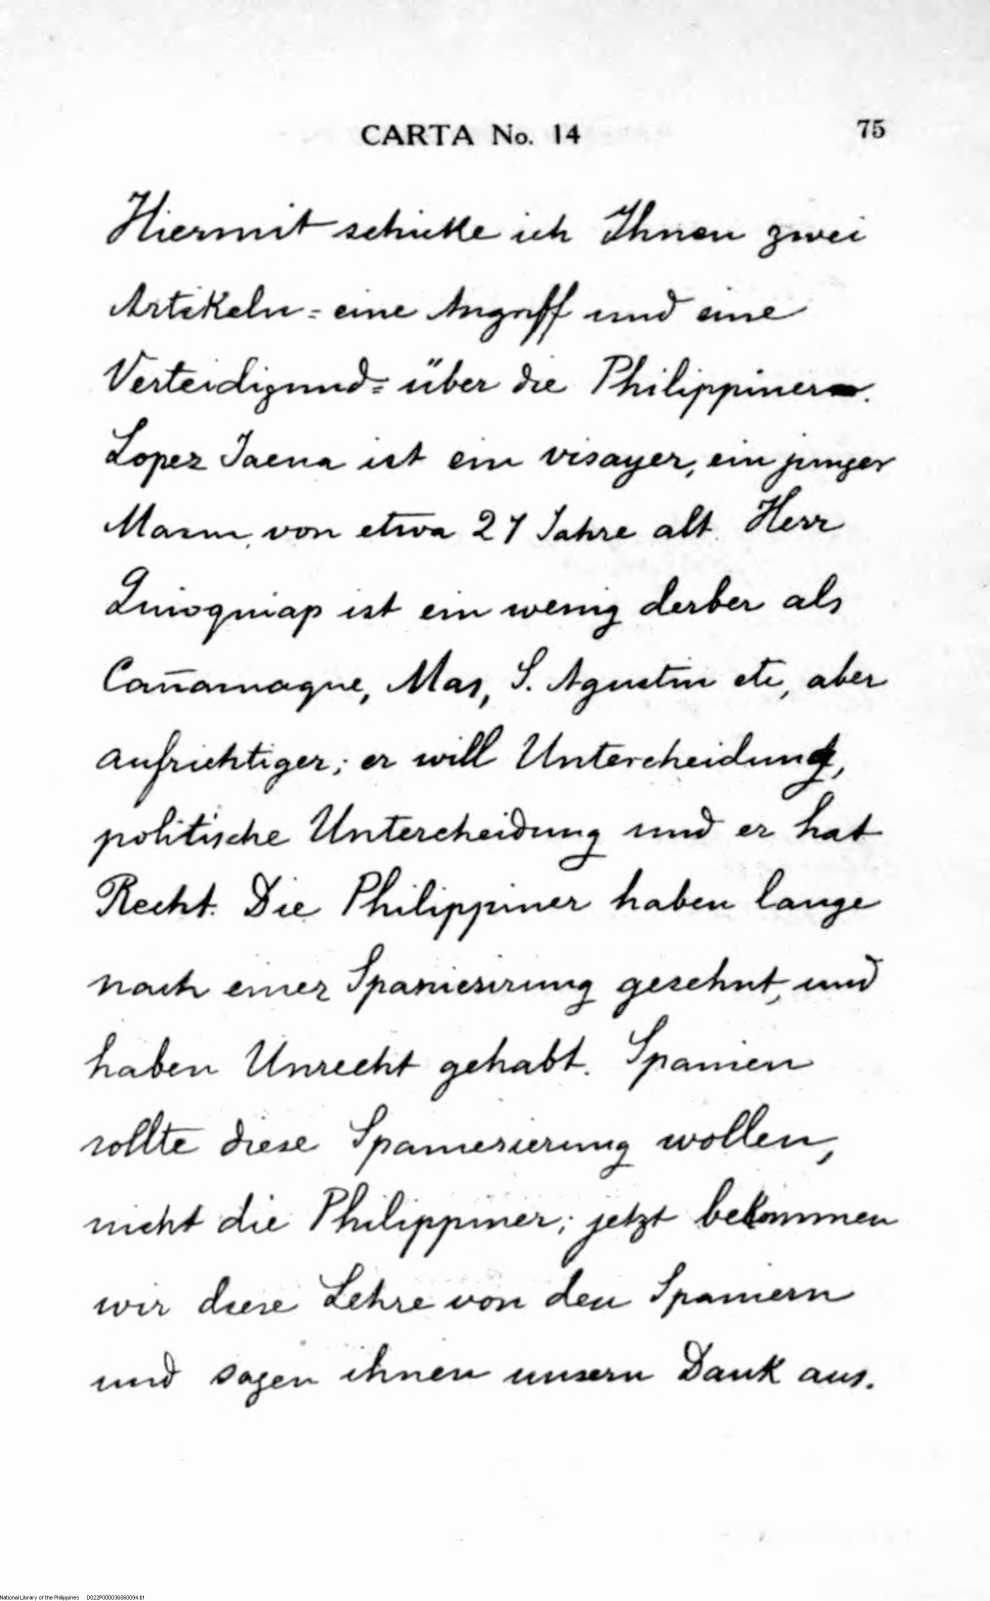 CARTA No. 14
75
Hiermit schicke ich Ihnen zwei
Artikeln = eine Angriff und eine
Verteidigund = über die Philippiner.
Lopez Jaena ist ein visayer, ein junger
Mann, von etwa 27 Jahre alt. Herr
Quioquiap ist ein wenig derber als
Cañamaque, Mas, S. Agustin etc, aber
aufrichtiger; er will Untercheidung,
politische Untercheidung und er hat
Recht. Die Philippiner haben lange
nach einer Spaniesirung gesehnt, und
haben Unrecht gehabt. Spanien
sollte diese Spaniesierung wollen,
nicht die Philippiner; jetzt bekommen
wir diese Lehre von den Spaniern
und sagen ihnen unsern Dank aus.
National Library of the Philippines